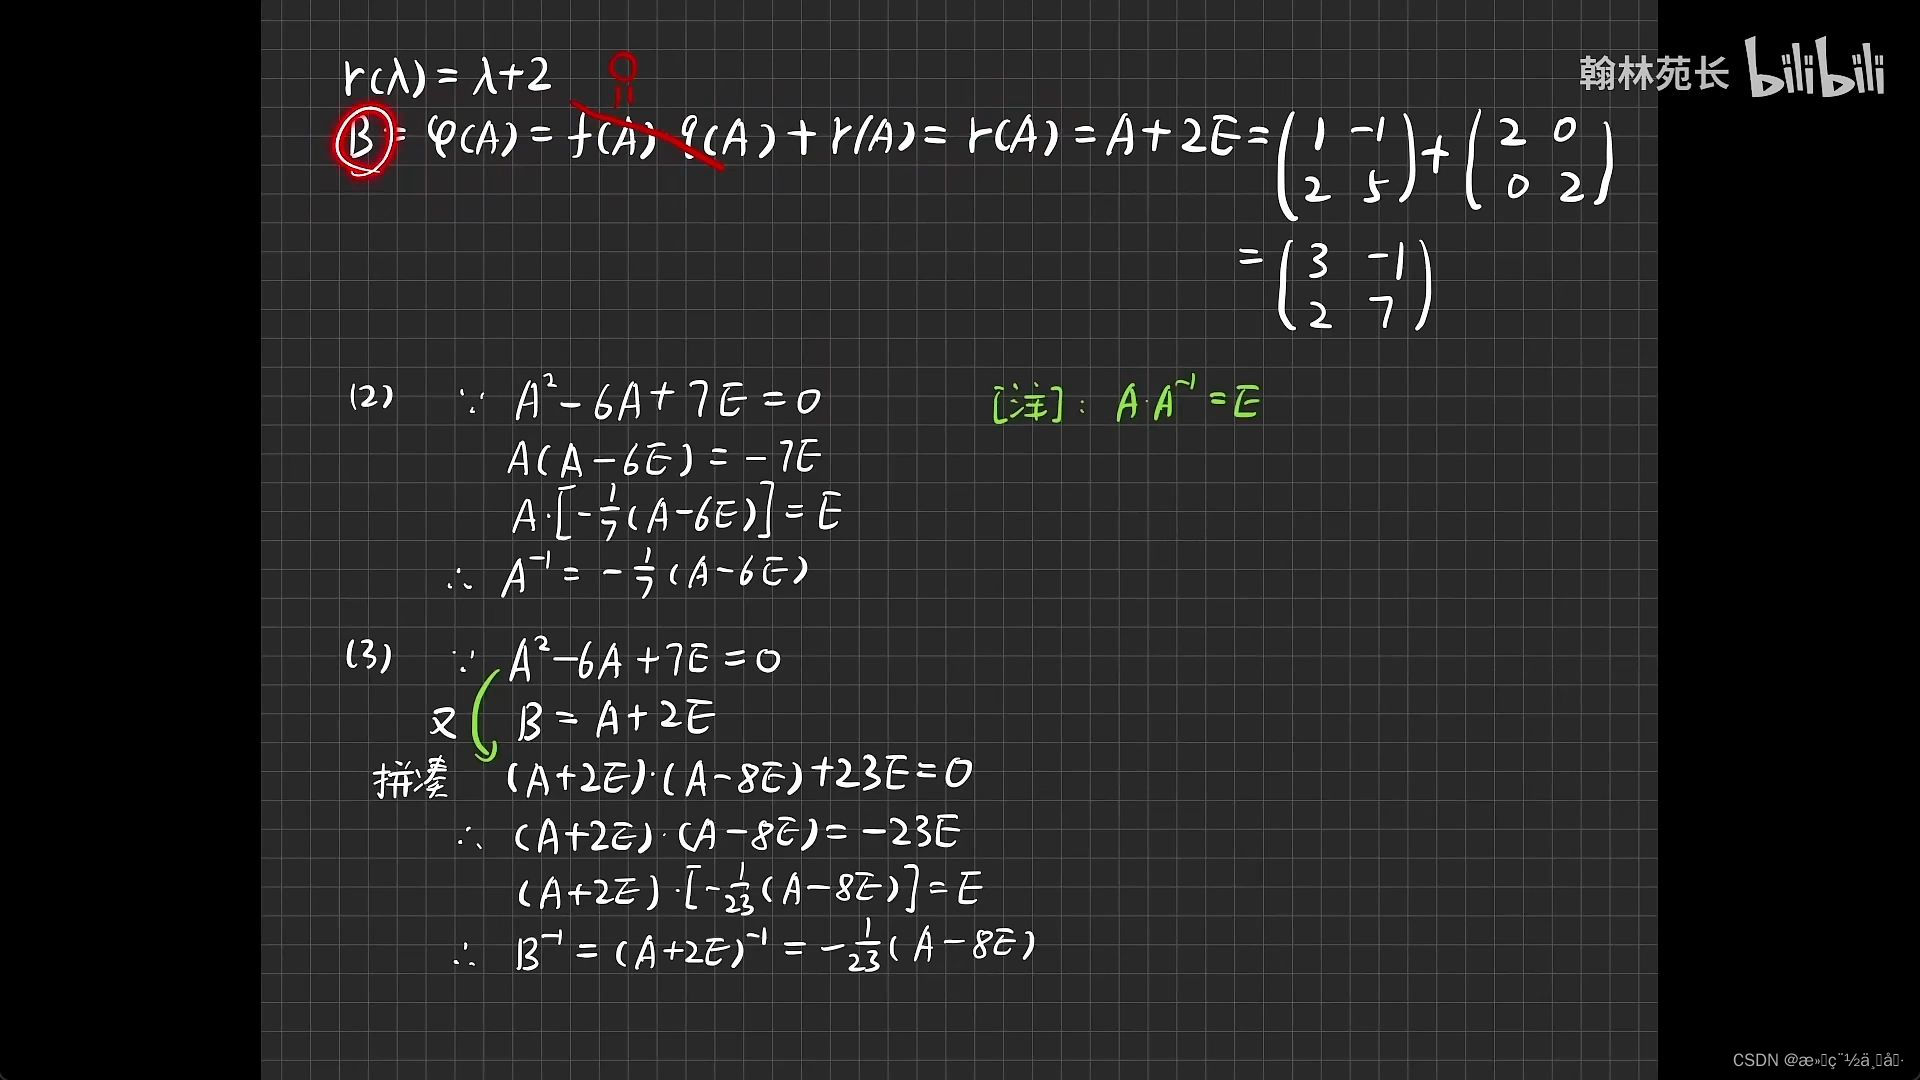 翰林苑长 bilibili
r(λ) = λ+2
0
B = φ(A) = f(A) q(A) + r(A) = r(A) = A + 2E = (1 -1 2 5) + (2 0 0 2)
= (3 -1 2 7)
(2) ∵ A² - 6A + 7E = 0 [注]: A·A⁻¹ = E
A(A - 6E) = -7E
A·[-1/7(A-6E)] = E
∴ A⁻¹ = -1/7(A-6E)
(3) ∵ A² - 6A + 7E = 0
又 B = A + 2E
拼凑 (A+2E)·(A-8E) + 23E = 0
∴ (A+2E)·(A-8E) = -23E
(A+2E)·[-1/23(A-8E)] = E
∴ B⁻¹ = (A+2E)⁻¹ = -1/23(A-8E)
CSDN